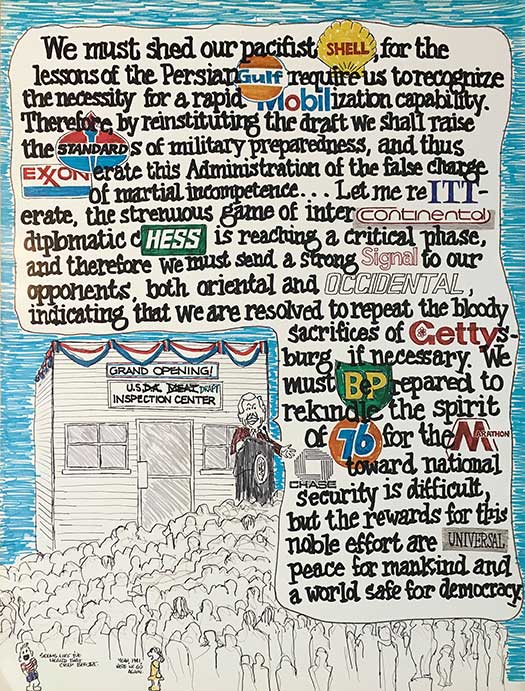 We must shed our pacifist SHELL, for the
lessons of the Persian Gulf require us to recognize
the necessity for a rapid Mobilization capability.
Therefore, by reinstituting the draft we shall raise
the STANDARDs of military preparedness, and thus
EXXONerate this Administration of the false charge
of martial incompetence... Let me reITT-
erate, the strenuous game of intercontinental
diplomatic cHESS is reaching a critical phase,
and therefore we must send a strong Signal to our
opponents, both oriental and OCCIDENTAL,
indicating that we are resolved to repeat the bloody
sacrifices of Gettys-
burg, if necessary. We
must BP repared to
rekindle the spirit
of 76 for the MARATHON
CHASE toward national
security is difficult,
but the rewards for this
noble effort are UNIVERSAL
peace for mankind and
a world safe for democracy.
GRAND OPENING!
U.S.D.A. MEAT DRAFT
INSPECTION CENTER
SEEMS LIKE I'VE
HEARD THEY
CREEP BEFORE.
YEAH, 1981
HERE WE GO
AGAIN.